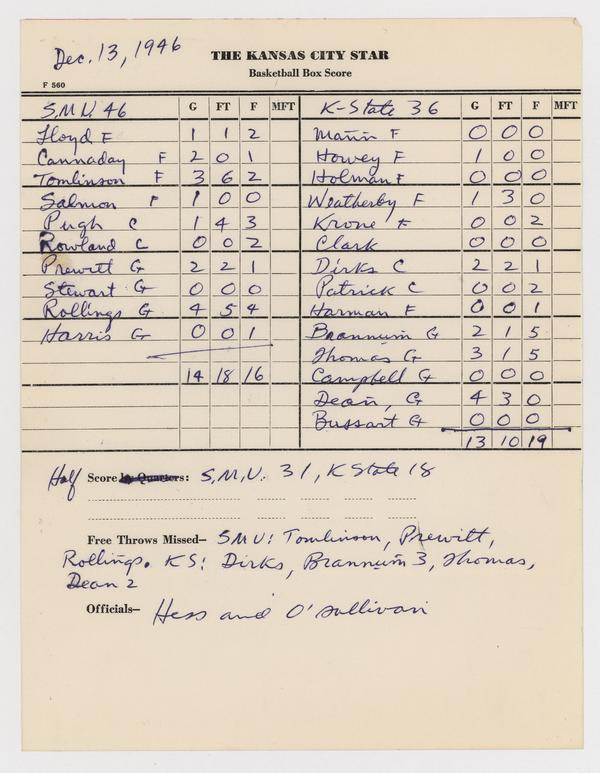 Dec. 13, 1946
THE KANSAS CITY STAR
Basketball Box Score
F 560
S.M.U. 46 G FT F MFT K-State 36 G FT F MFT
Floyd F 1 1 2 Mann F 0 0 0
Cannaday F 2 0 1 Howey F 1 0 0
Tomlinson F 3 6 2 Holman F 0 0 0
Salmon F 1 0 0 Weatherby F 1 3 0
Pugh C 1 4 3 Krone F 0 0 2
Rowland C 0 0 2 Clark 0 0 0
Prewitt G 2 2 1 Dirks C 2 2 1
Stewart G 0 0 0 Patrick C 0 0 2
Rollings G 4 5 4 Harman F 0 0 1
Harris G 0 0 1 Brannum G 2 1 5
Thomas G 3 1 5
14 18 16 Campbell G 0 0 0
Dean, G 4 3 0
Bussart G 0 0 0
13 10 19
Half Score by Quarters: S.M.U. 31, K State 18
Free Throws Missed— SMU: Tomlinson, Prewitt,
Rollings. KS: Dirks, Brannum 3, Thomas,
Dean 2
Officials— Hess and O'Sullivan